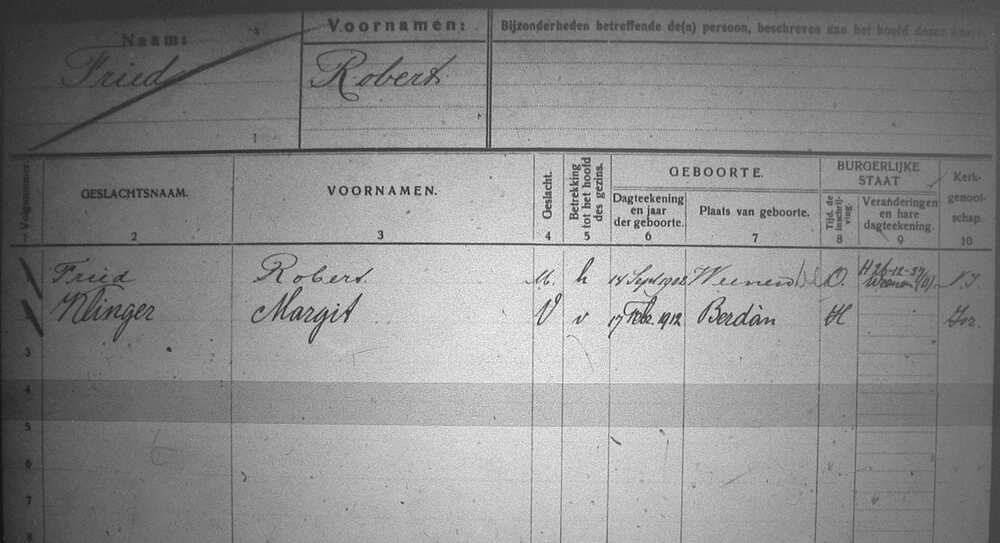 Naam:
Voornamen:
Bijzonderheden betreffende de(n) persoon, beschreven aan het hoofd dezer
Fried
Robert
1
Volgnummer
GESLACHTSNAAM.
VOORNAMEN.
Geslacht.
Betrekking tot het hoofd des gezins.
GEBOORTE.
BURGERLIJKE STAAT
Kerk-
genoot-
schap.
Dagteekening en jaar der geboorte.
Plaats van geboorte.
Tijd. de inschrijving.
Veranderingen en hare dagteekening.
2 3 4 5 6 7 8 9 10
Fried Robert M. h 14 Sept 1908 O. H 26-12-37 N I
Klinger Margit V v 17 Feb. 1912 Berdàn H Isr.
3
4
5
6
7
8